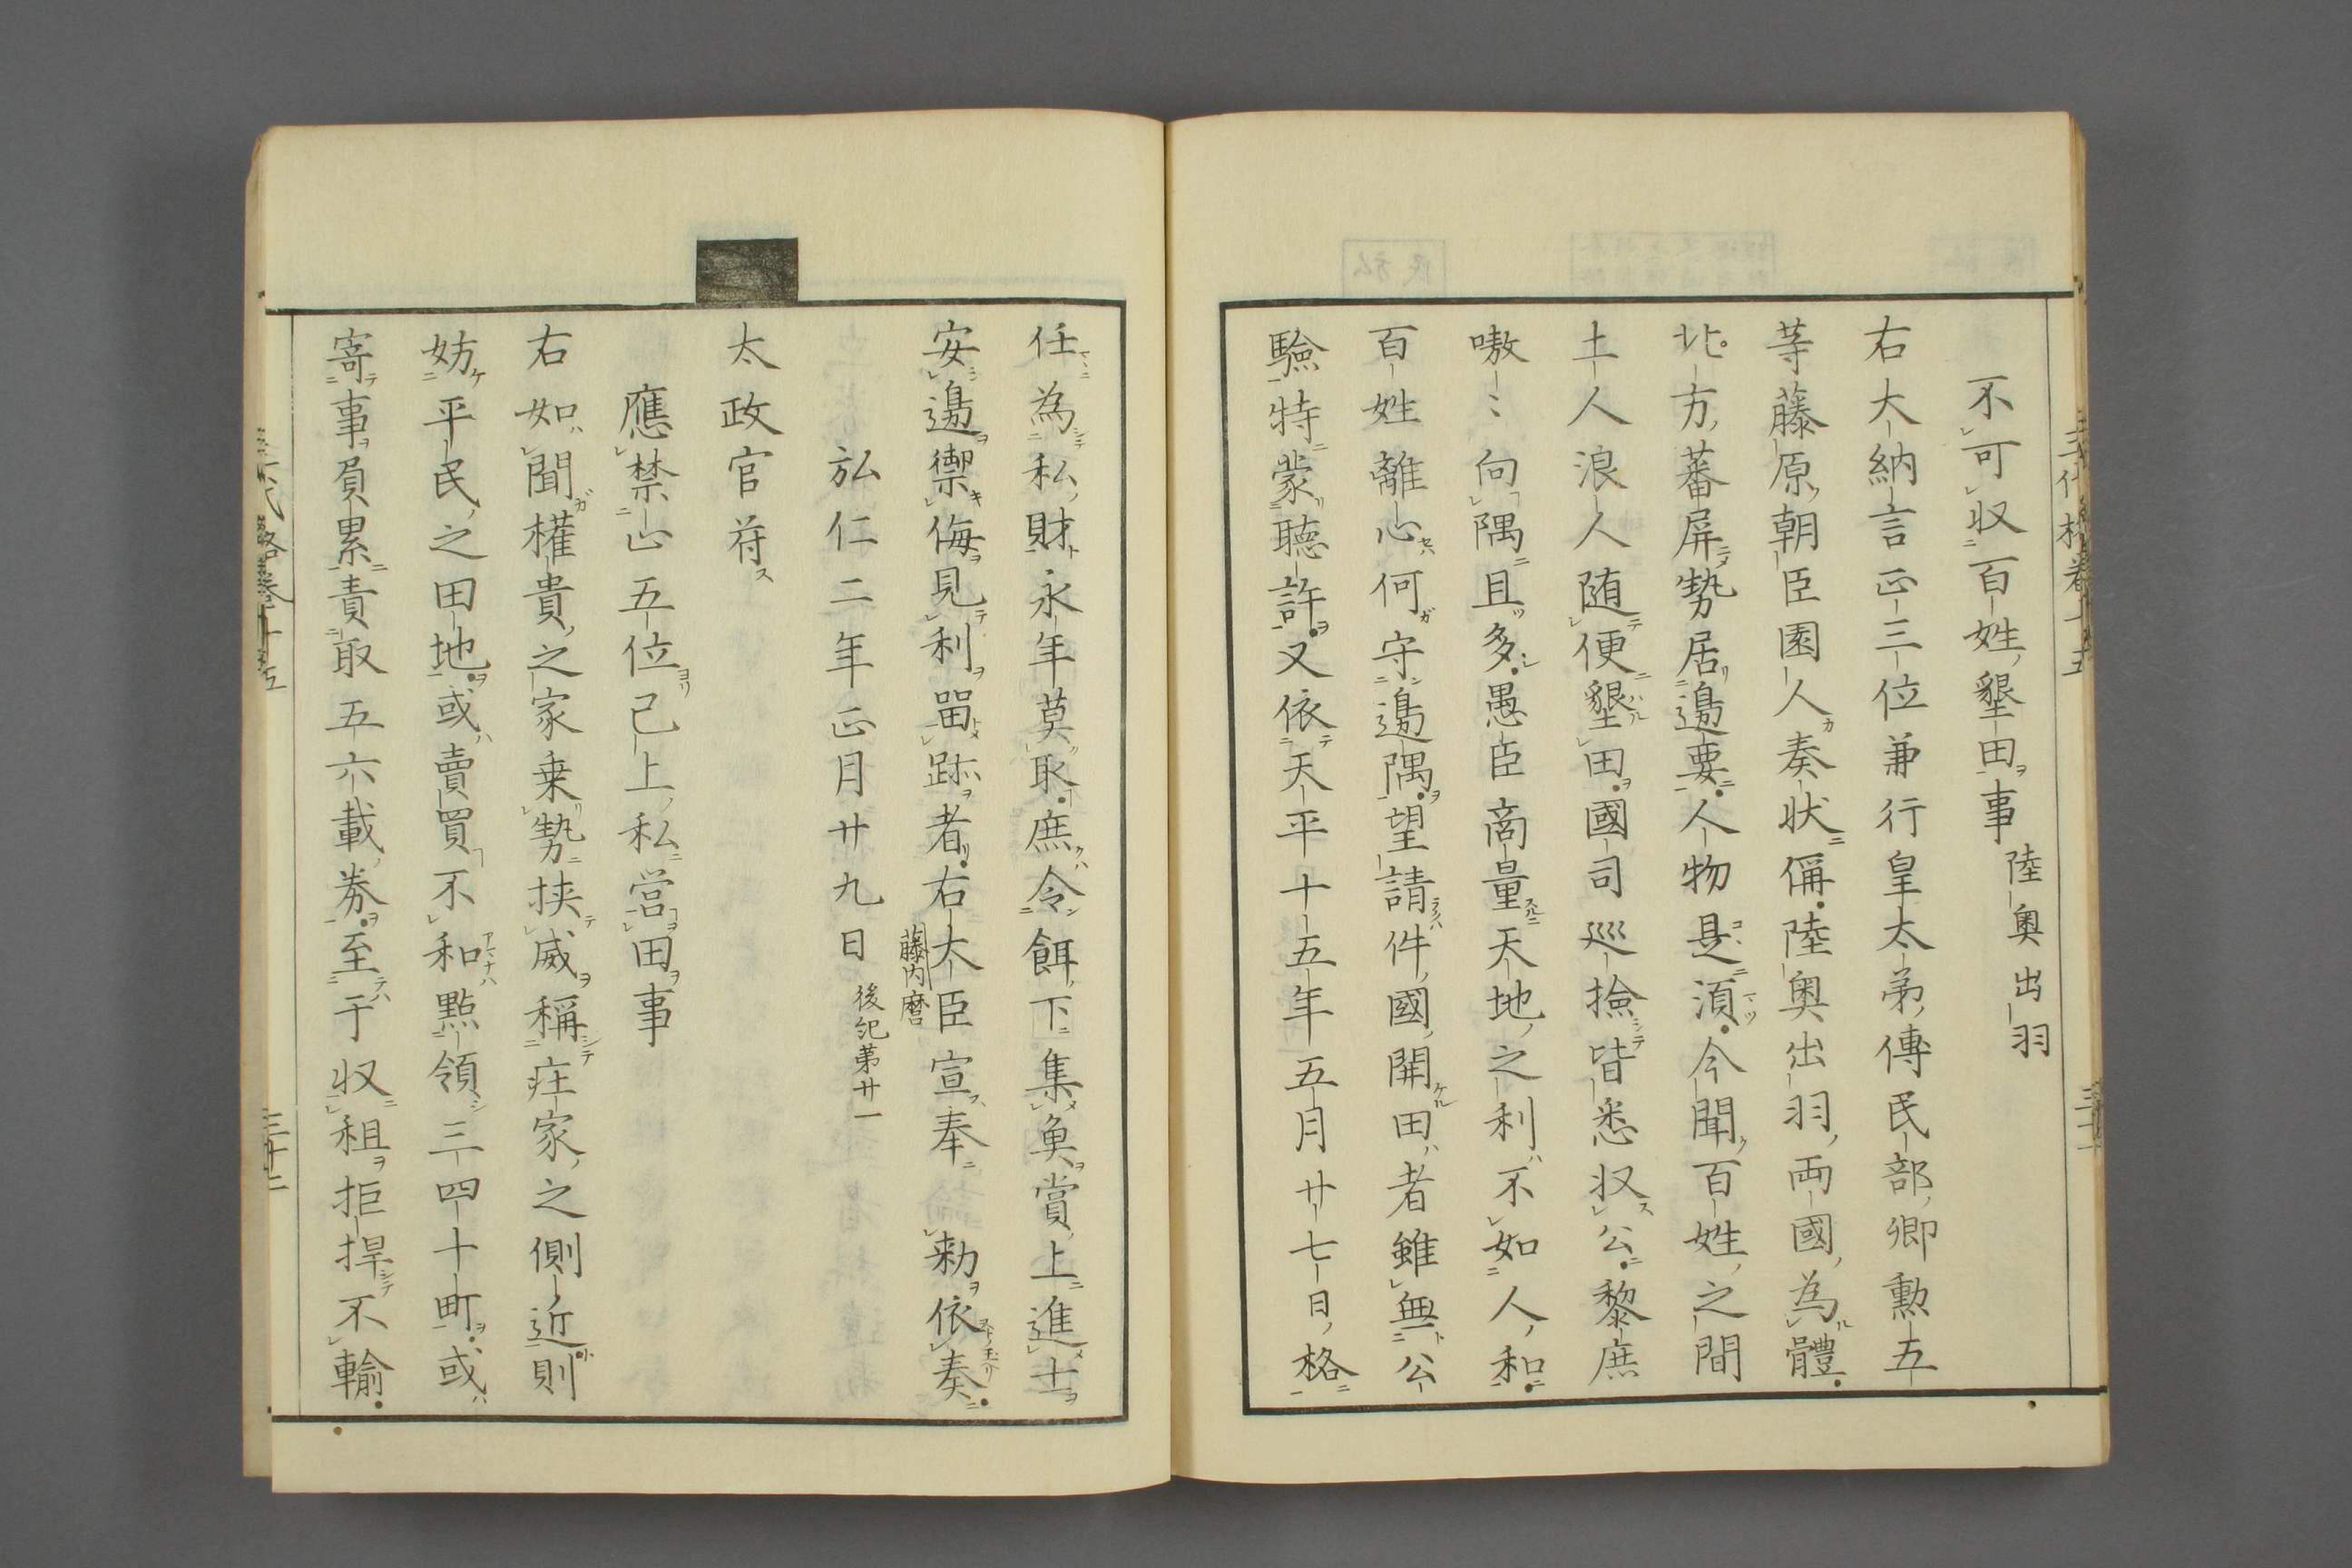 不可収百姓墾田事 陸奥出羽
右大納言正三位兼行皇太弟傳民部卿勲五
等藤原朝臣園人奏状偁陸奥出羽両國為體
北方蕃屏勢居邉要人物是湏今聞百姓之間
土人浪人随便墾田國司巡撿皆悉収公黎庶
嗷〻向隅且多愚臣商量天地之利不如人和
百姓離心何守邉隅望請件國開田者雖無公
驗特蒙聴許又依天平十五年五月廿七日格
任為私財永年莫取庶令餌下集魚賞上進士
安邉禦侮見利畄跡者右大臣宣奉 勅依奏
藤内麿
弘仁二年正月廿九日 後紀第廿一
太政官符
應禁止五位已上私営田事
右如聞權貴之家乗勢挟威稱庄家之側近則
妨平民之田地或賣買不和點領三四十町或
寄事負累責取五六載券至于収租拒捍不輸